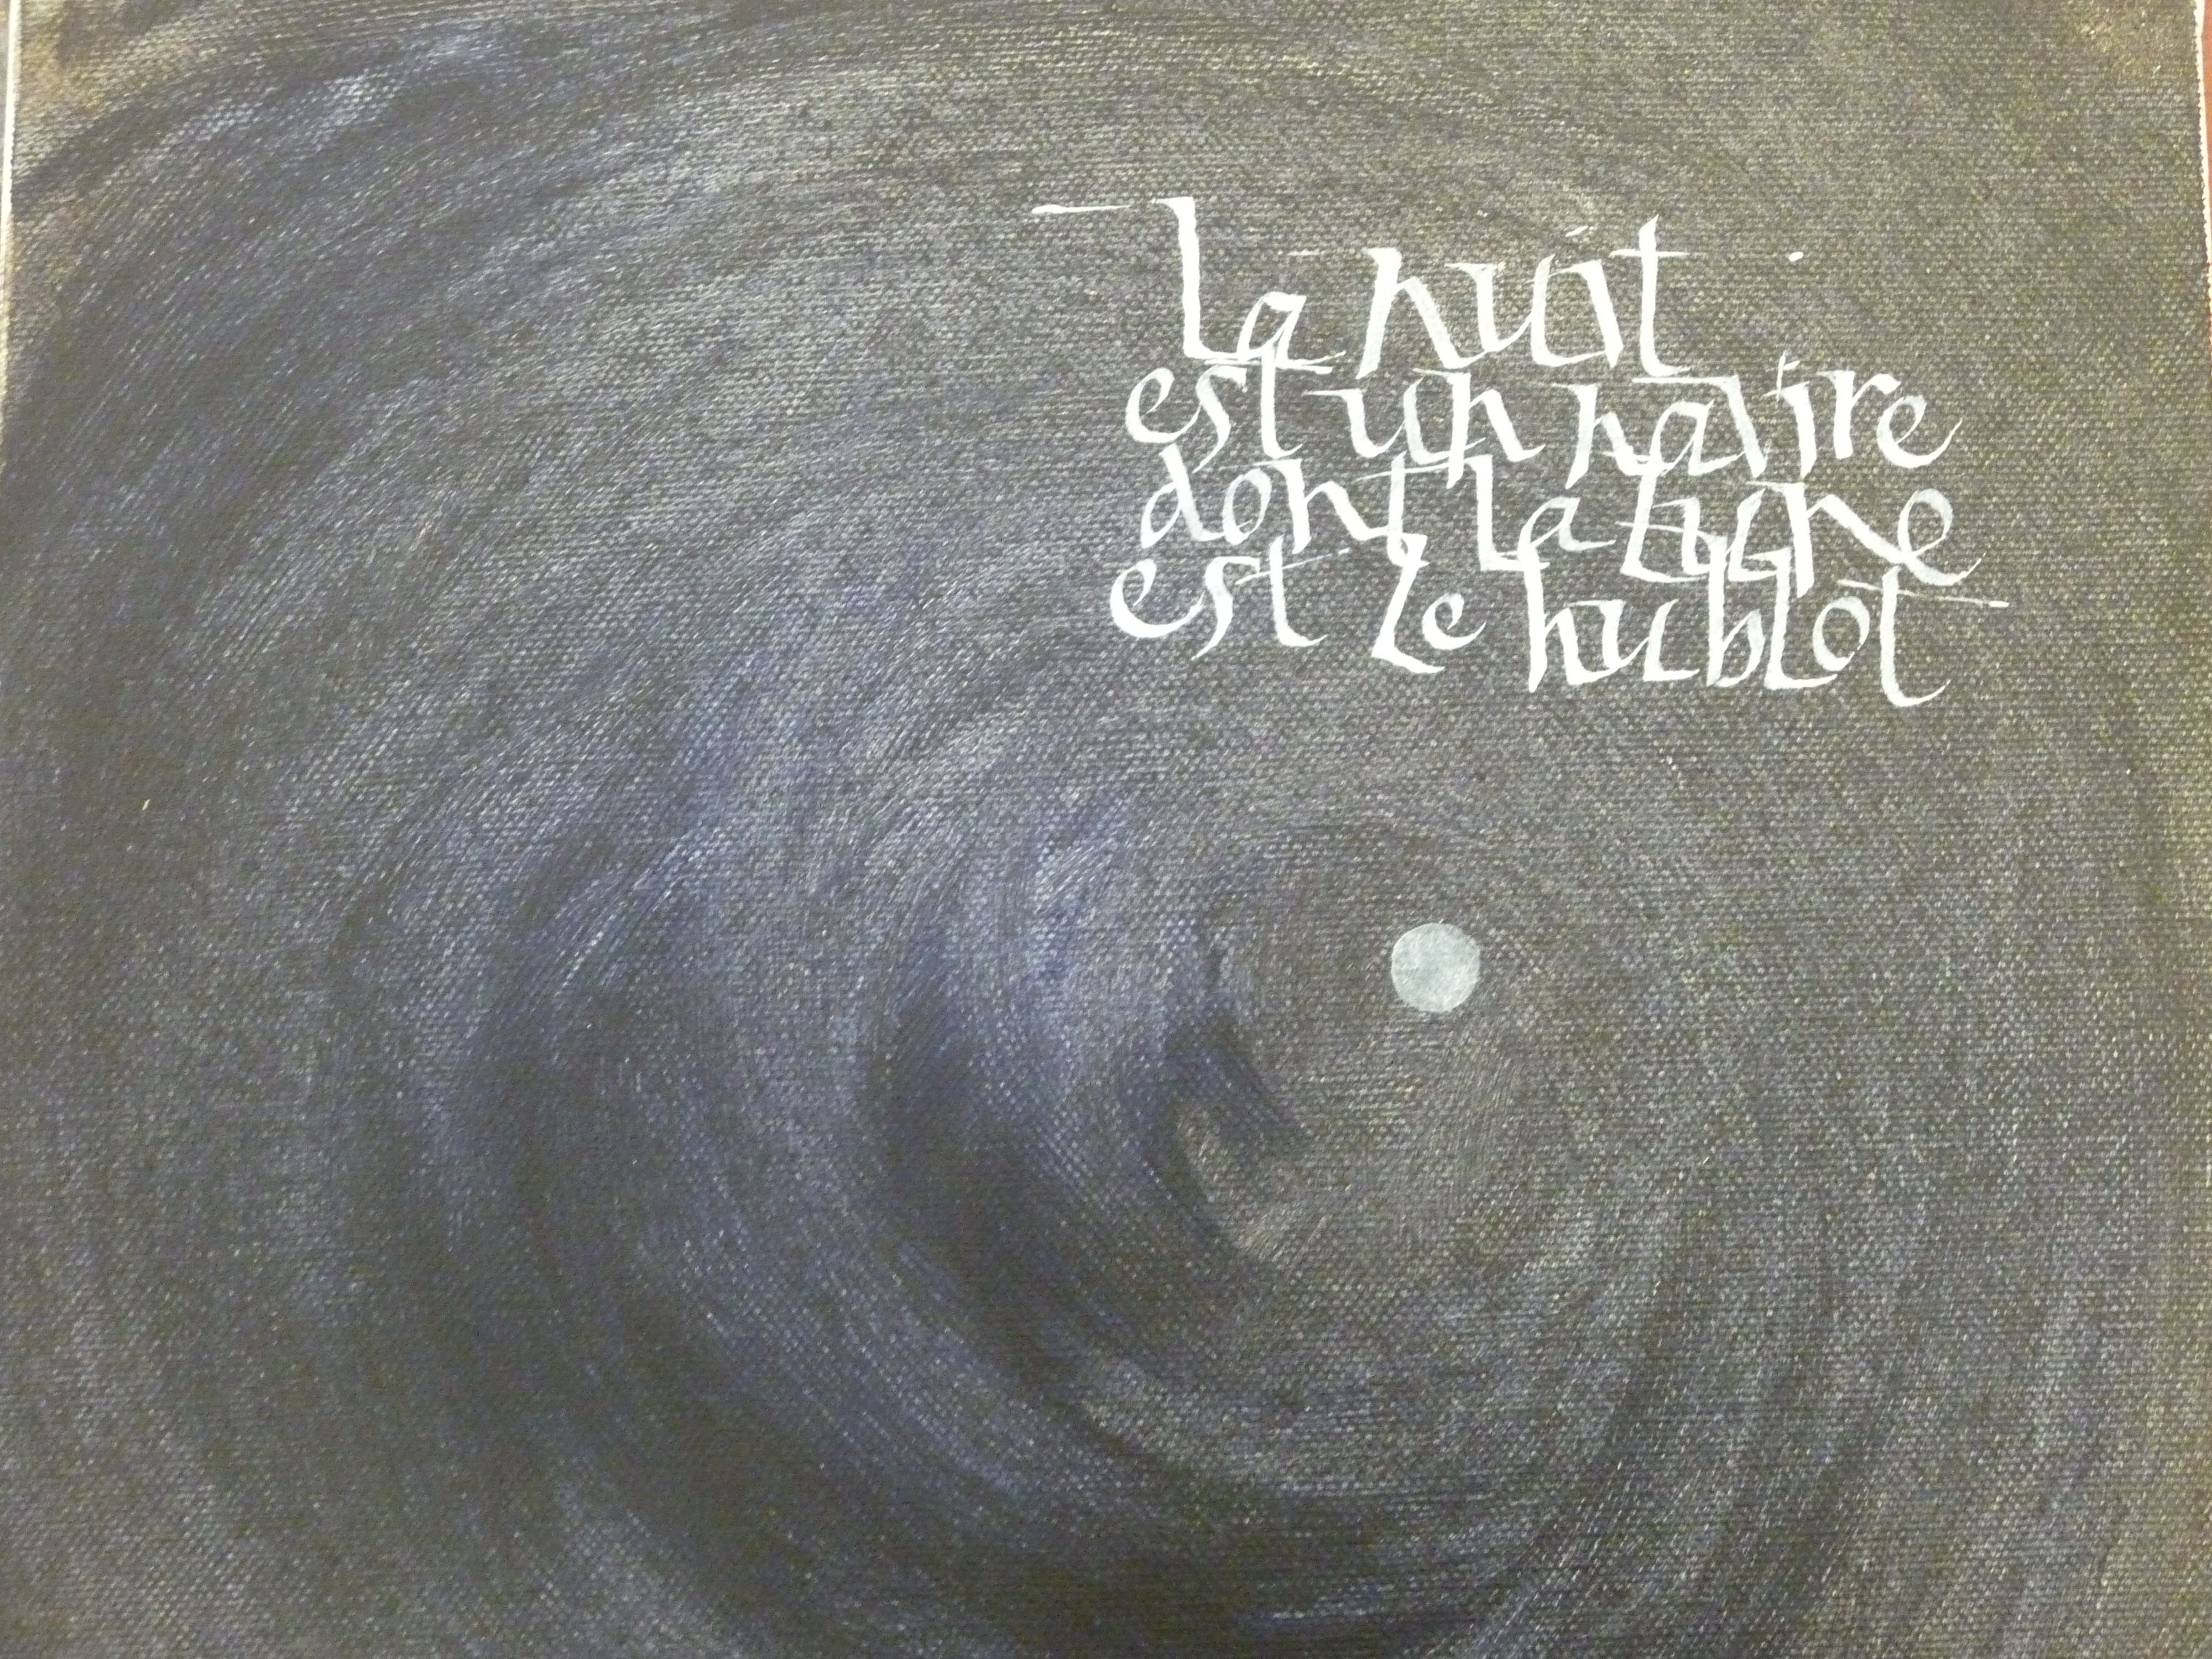 La nuit
est un navire
dont la lune
est le hublot